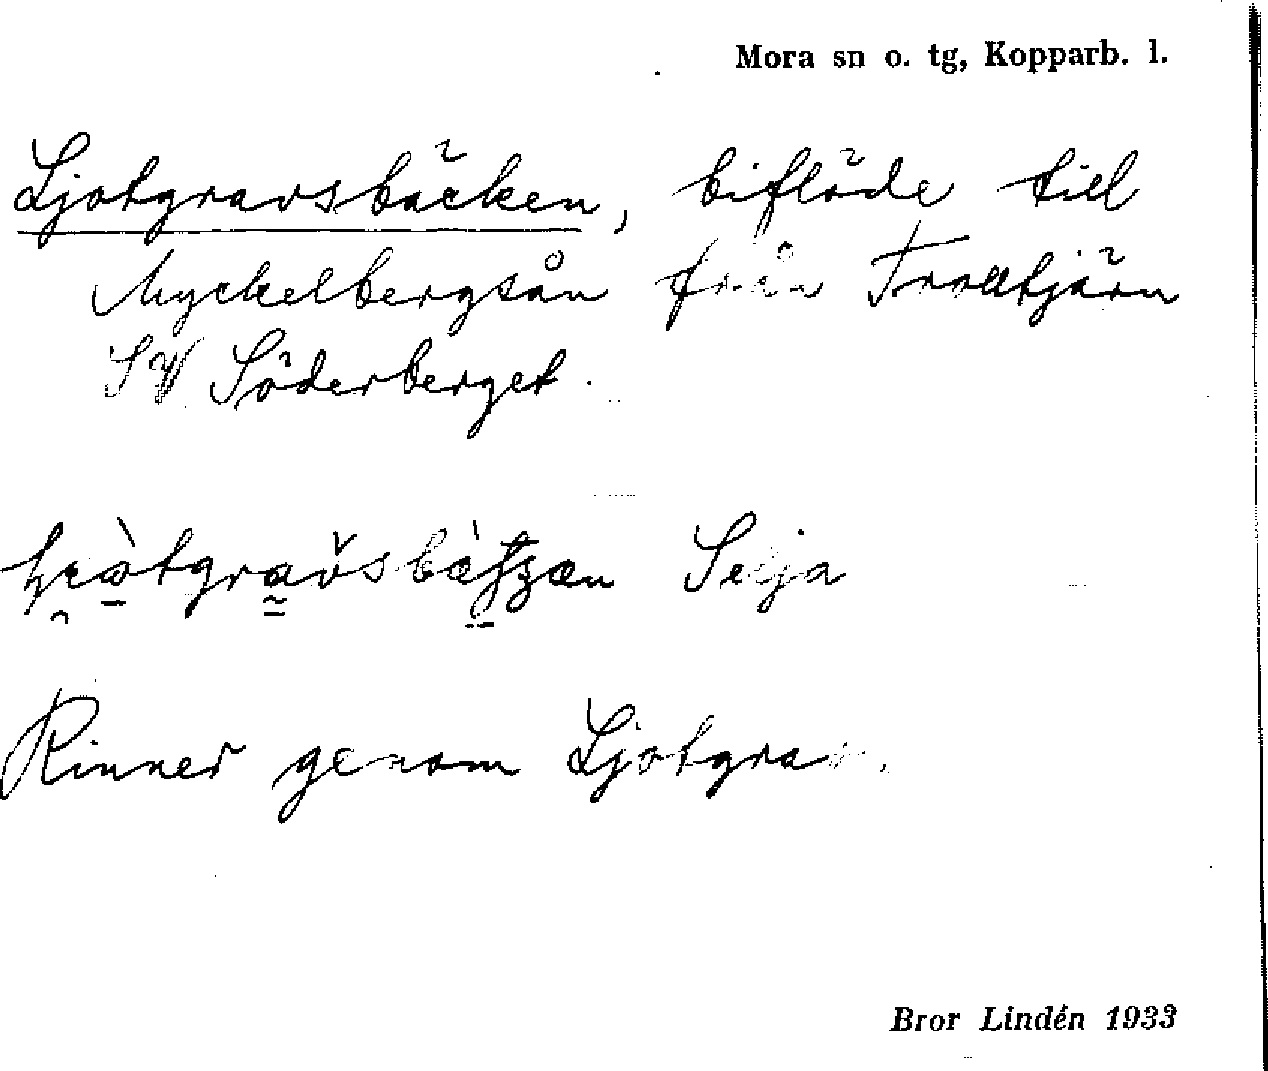 Mora sn o. tg, Kopparb. l.
Ljotgravsbäcken, biflöde till
Myckelbergsån från Trolltjärn
SV Söderberget.
Selja
Rinner genom Ljotgrav.
Bror Lindén 1933